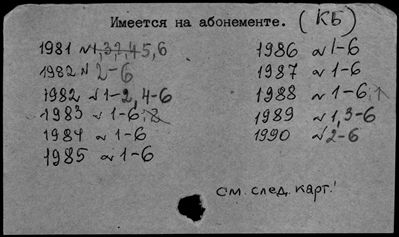 Имеется на абонементе. (КБ)
1981 №1,3?,45,6
1982 № 2-6
1982 № 1-2, 4-6
1983 № 1-6
1984 № 1-6
1985 № 1-6
1986 № 1-6
1987 № 1-6
1988 № 1-6
1989 № 1,3-6
1990 № 2-6
см. след. карт.!